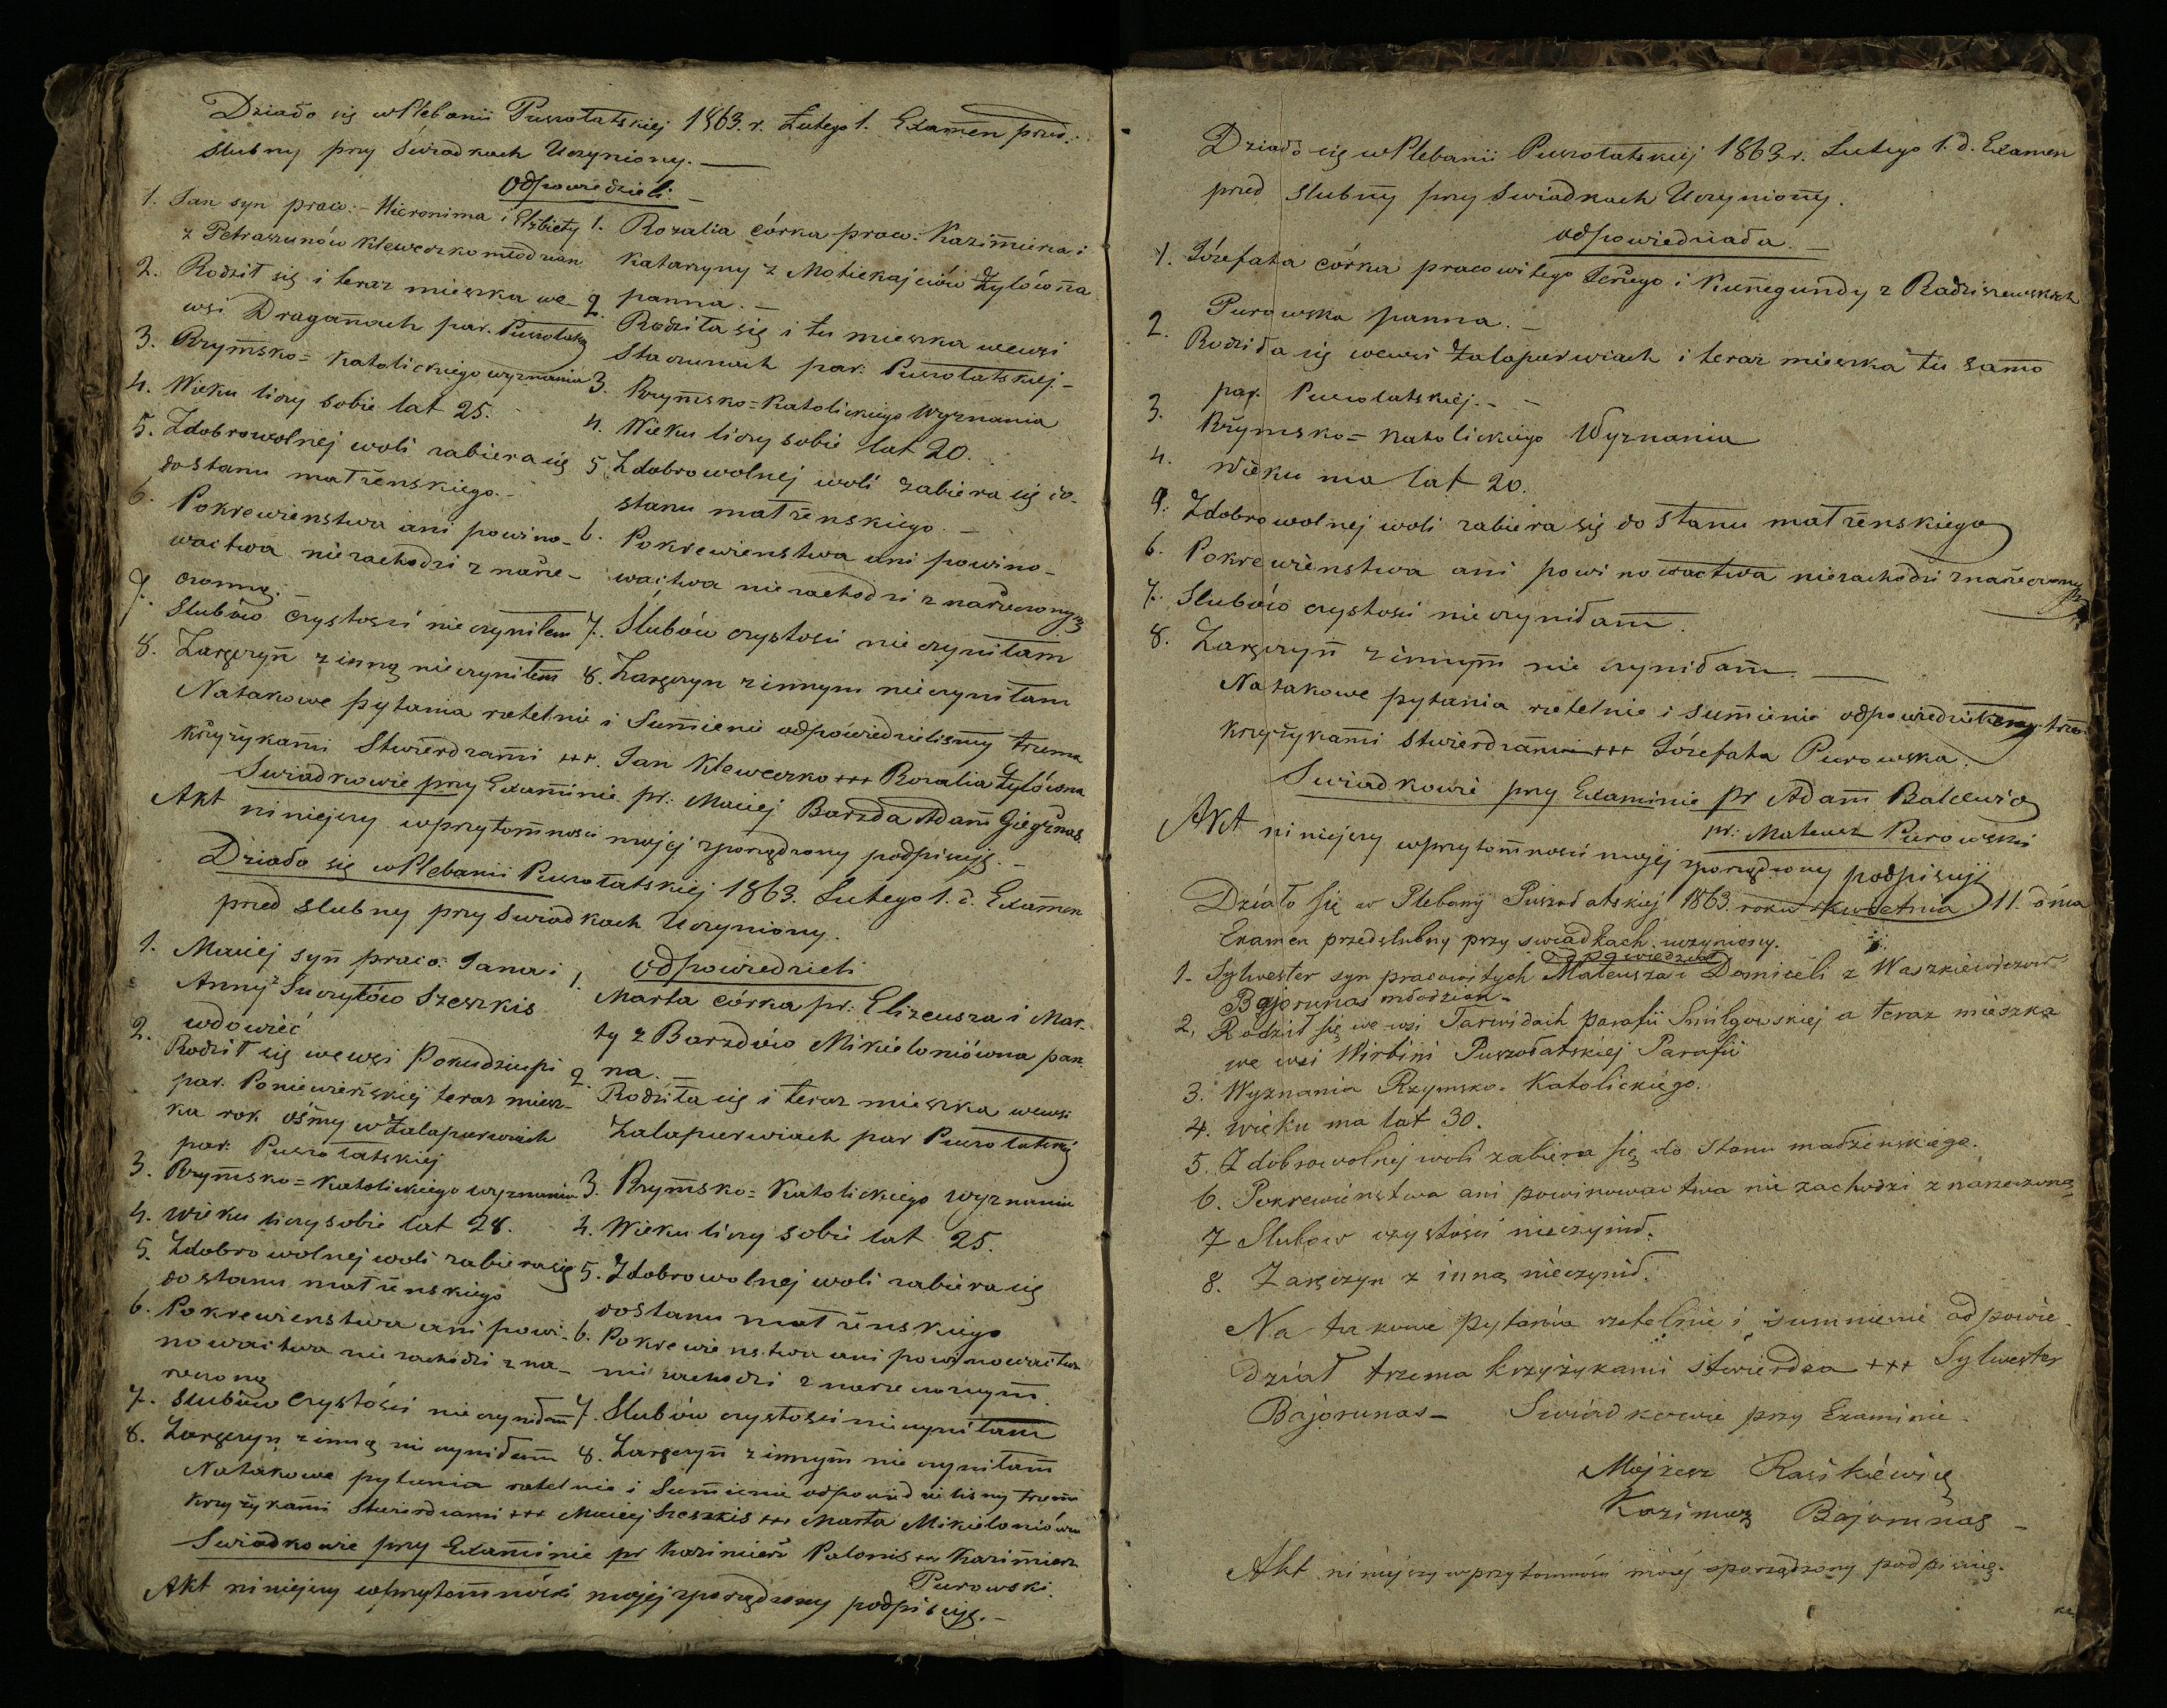 Działo się w Plebanii Puszołatskiej 1863. r. Lutego 1. Examen pred.
slubny przy Swiadkach Uczyniony. —
Odpowiedzieli. —
1. Jan syn prac. Hieronima i Elżbiety
z Petraszunów Kleweczko młodzian
2. Rodził się i teraz mieszka we
wsi Draganach par. Puszołatskiej
3. Rzymsko=Katolickiego wyznania
4. Wieku liczy sobie lat 25.
5. Zdobrowolnej woli zabiera się
do stanu małżenskiego. —
6. Pokrewienstwa ani powino-
wactwa niezachodzi z narze-
czonną.
7. Slubów czystości nie czyniłem
8. Zaręczyn z inną nie czyniłem
1. Rozalia córka prac. Kazimierza i
Katarzyny z Motiekajciów Żylówna
panna. —
2. Rodziła się i tu mieszka wewsi
Staczunach par. Puszołatskiej. —
3. Rzymsko=Katolickiego Wyznania
4. Wieku liczy sobie lat 20.
5. Zdobrowolnej woli zabiera się do
stanu małżenskiego. —
6. Pokrewienstwa ani powino-
wactwa nie zachodzi z narzeczonym
7. Slubów czystości nie czyniłam
8. Zaręczyn z innym nie czyniłam
Natakowe pytania rzetelnie i Sumienie odpowiedzielismy trzema
krzyżykami Stwierdzami +++. Jan Kleweczko +++ Rozalia Żylówna
Swiadkowie przy Examinie pr. Maciej Barzda Adam Giegżnas.
Akt niniejszy wprzytomnosci mojej zporządzony podpisuję. —
Działo się w Plebanii Puszołatskiej 1863. Lutego 1. d. Examen
pred slubny przy Swiadkach Uczyniony.
odpowiedzieli
1. Maciej syn prac. Jana i
Anny z Suczyłów Szeszkis
wdowiec
2. Rodził się wewsi Pokudziupi
par. Poniewieżskiej teraz miesz-
ka rok ośmy w Żalapurwiach
par. Puszołatskiej
3. Rzymsko=Katolickiego wyznania
4. wieku liczy sobie lat 28.
5. Zdobrowolnej woli zabiera się
do stanu małżenskiego
6. Pokrewienstwa ani powi-
nowactwa nie zachodzi z na-
rzeczoną
7. slubów czystości nie czyniłam
8. Zaręczyn z inną nie czyniłam
1. Marta córka pr. Elizeusza i Mar-
ty z Barzdów Mikieloniówna pan
na. —
2. Rodziła się i teraz mieszka wewsi
Żalapurwiach par Puszołatskiej
3. Rzymsko=Katolickiego wyznania
4. Wieku liczy sobie lat 25.
5. Zdobrowolnej woli zabiera się
do stanu małżenskiego
6. Pokrewienstwa ani powinowactwa
nie zachodzi z narzeczonym.
7. Slubów czystosci nie czyniłam
8. Zaręczyn z innym nie czyniłam
Natakowe pytania rzetelnie i Sumienie odpowiedzielismy trzema
krzyżykami Stwierdzami +++ Maciej Szeszkis +++ Marta Mikieloniówna
Swiadkowie przy Examinie pr Kazimierz Palonis +++ Kazimierz
Purowski.
Akt niniejszy wprzytomności mojej zporządzony podpisuję. —
Działo się w Plebanii Puszołatskiej 1863 r. Lutego 1. d. Examen
pred slubny przy Swiadkach Uczyniony.
odpowiedziała. —
1. Józefata córka pracowitego Jerzego i Kunegundy z Radziszewskich
Purowska panna. —
2. Rodziła się wewsi Żalapurwiach i teraz mieszka tu samo
par. Puszołatskiej. —
3. Rzymsko=Katolickiego Wyznania
4. Wieku ma lat 20.
5. Zdobrowolnej woli zabiera się do stanu małżenskiego
6. Pokrewienstwa ani powinowactwa niezachodzi z narzeczonym
7. Slubów czystosci nie czyniłam.
8. Zaręczyn z innym nie czyniłam. —
Natakowe pytania rzetelnie i sumienie trzema
krzyżykami stwierdzam +++ Józefata Purowska.
Swiadkowie przy Examinie pr Adam Balcewicz
pr. Mateusz Purowski
Akt niniejszy wprzytomnosci mojej zporządzony podpisuję
Działo się w Plebanij Puszołatskiej 1863. roku Kwietnia 11. dnia
Examen przedslubny przy swiadkach uczyniony.
Odpowiedział
1. Sylwester syn pracowitych Mateusza i Domiceli z Waszkiewiczow
Bajorunas młodzian —
2. Rodził się we wsi Tarwidach parafii Smilgowskiej a teraz mieszka
we wsi Wirbini Puszołatskiej Parafii
3. Wyznania Rzymsko-Katolickiego.
4. wieku ma lat 30.
5. Z dobrowolnej woli zabiera się do stanu madżenskiego.
6. Pokrewienstwa ani powinowactwa nie zachodzi z narzeczoną
7 Slubow czystości nieczynił.
8. Zaręczyn z inną nieczynił.
Na takowe pytania rzetelnie i sumienie odpowie-
dział trzema krzyżykami stwierdza +++ Sylwester
Bajorunas — Swiadkowie przy Examinie.
Mojżesz Raszkiewicz
Kazimierz Bajorunas —
Akt niniejszy wprzytomności mojej sporządzony podpisuię.